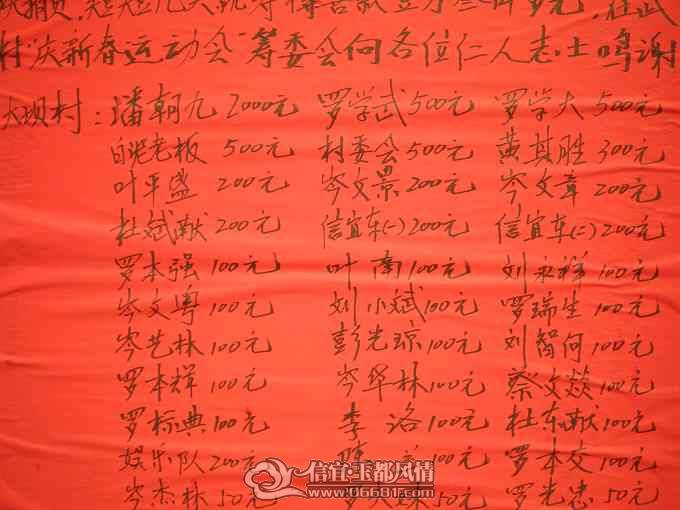 村"庆新春运动会"筹委会向各位仁人志士鸣谢
大坝村：潘朝九 2000元 罗学武 500元 罗学大 500元
白泥老板 500元 村委会 500元 黄其胜 300元
叶平盛 200元 岑文景 200元 岑文章 200元
杜斌献 200元 信宜车(一) 200元 信宜车(二) 200元
罗本强 100元 叶南 100元 刘永祥 100元
岑文粤 100元 刘小斌 100元 罗瑞生 100元
岑艺林 100元 彭光琼 100元 刘智何 100元
罗本群 100元 岑华林 100元 蔡文燚 100元
罗标典 100元 李洛 100元 杜东献 100元
娱乐队 200元 100元 罗本交 100元
岑杰林 50元 50元 罗光忠 50元
信宜·玉都风情
www.06681.com